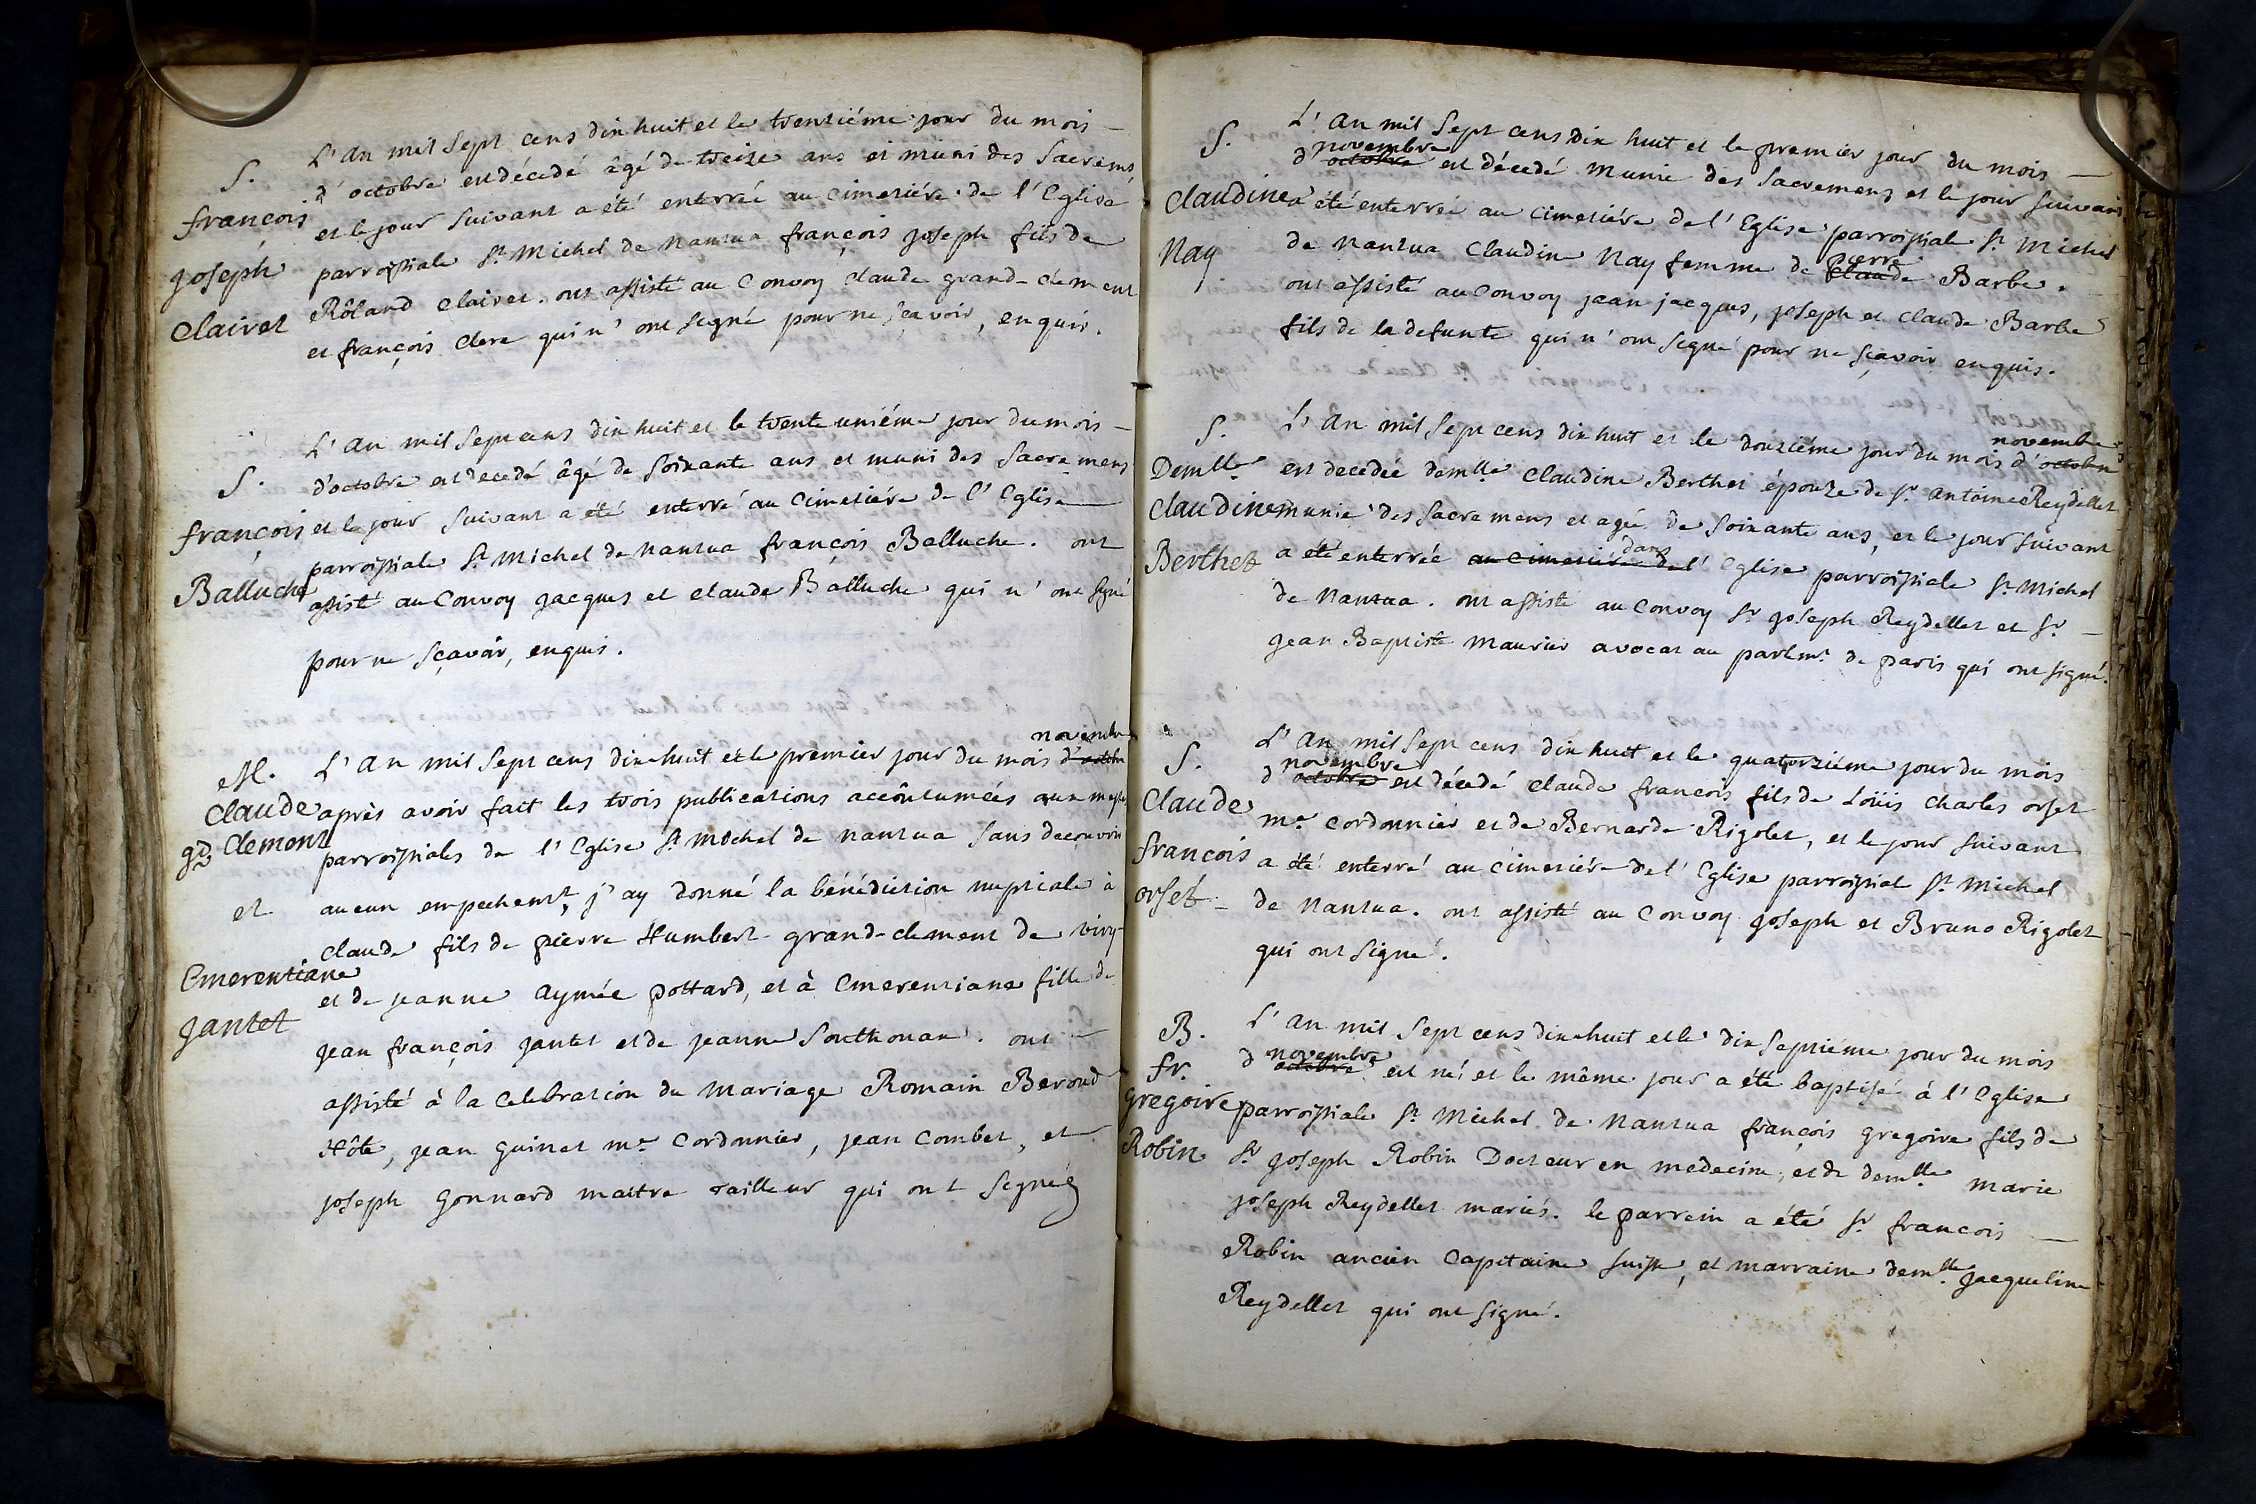 S.
françois
joseph
Clairet
L'an mil sept cens dix huit et le trentiéme jour du mois
d'octobre est décedé âgé de treize ans et muni des Sacremś
et le jour suivant a été enterréé au cimetiére de l'Eglise
parroissiale St Michel de Nantua françois joseph fils de
Rôland Clairet. ont assisté au Convoy Claude grand-clement
et françois Clere qui n'ont signé pour ne sçavoir, enquis.
S.
françois
Balluche
L'an mil sept cens dix huit et le trente uniéme jour du mois
d'octobre est decedé âgé de soixante ans et muni des Sacremens
et le jour suivant a été enterré au Cimetiére de l'Eglise
parroissiale St Michel de Nantua françois Balluche. ont
assisté au Convoy jacques et claude Balluche qui n'ont signé
pour ne sçavoir, enquis.
M.
Claude
gd Clement
et
Emerentiane
jantet
novembre
L'an mil sept cens dix-huit et le premier jour du mois d'octobre
après avoir fait les trois publications accôutumées aux messes
parroissiales de l'Eglise St Michel de Nantua sans decouvrir
aucun empechemt, j'ay donné la bénédiction nuptiale à
Claude fils de pierre Humbert-grand-clement de viry
et de jeanne Aymée pottard, et à Emerentiane fille de
jean françois jantet et de jeanne Southonax. ont
assisté à la Celebration du Mariage Romain Beroud
Hôte, jean guinet me Cordonnier, jean Combet, et
joseph gonnard maitre tailleur qui ont signéé
S.
Claudine
Nay
L'an mil sept cens dix huit et le premier jour du mois
novembre
d'octobre est décedé munie des sacremens et le jour suivant
a été enterréé au cimetiére de l'Eglise parroissiale St Michel
pierre
de Nantua Claudine Nay femme de Claude Barbe.
ont assisté au Convoy jean jacques, joseph et Claude Barbe
fils de la defunte qui n'ont signé pour ne sçavoir enquis.
S.
Demlle
Claudine
Berthet
novembre
L'an mil sept cens dix huit et le douziéme jour du mois d'octobre
est decedéé demlle Claudine Berthet épouze de Sr antoine Reydellet
munie des Sacremens et agée de soixante ans, et le jour suivant
dans
a été enterrée au cimetiére de l'Eglise parroissiale St Michel
de Nantua. ont assisté au Convoy Sr joseph Reydellet et Sr
jean Baptiste Maurier avocat au parlemt de paris qui ont signé.
S.
Claude
francois
orset
L'an mil sept cens dix huit et le quatorziéme jour du mois
novembre
d'octobre est décedé Claude francois fils de Loüis Charles orset
me cordonnier et de Bernarde Rigolet, et le jour suivant
a été enterré au cimetiére de l'Eglise parroissial St Michel
de Nantua. ont assisté au Convoy joseph et Bruno Rigolet
qui ont signé.
B.
fr.
gregoire
Robin
L'an mil sept cens dix-huit et le dix septiéme jour du mois
novembre
d'octobre est né, et le même jour a été baptisé à l'Eglise
parroissiale St Michel de Nantua françois gregoire fils de
Sr joseph Robin Docteur en medecine, et de demlle marie
joseph Reydellet mariés. le parrein a été Sr francois
Robin ancien Capitaine suisse, et marraine demlle jacqueline
Reydellet qui ont signé.